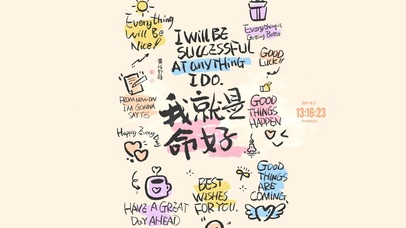 Everything
Will Be
Nice!
I WILL BE
SUCCESSFUL
AT anything
I DO.
Everything is
Getting Better
GOOD
LUCK!!
FROM NOW ON
I'M GONNA
SAY YES
我就是
命好
GOOD
THINGS
HAPPEN
13:16:23
Happy Every
HAVE A GREAT
DAY AHEAD
BEST
WISHES
FOR YOU.
GOOD
THINGS
ARE
COMING